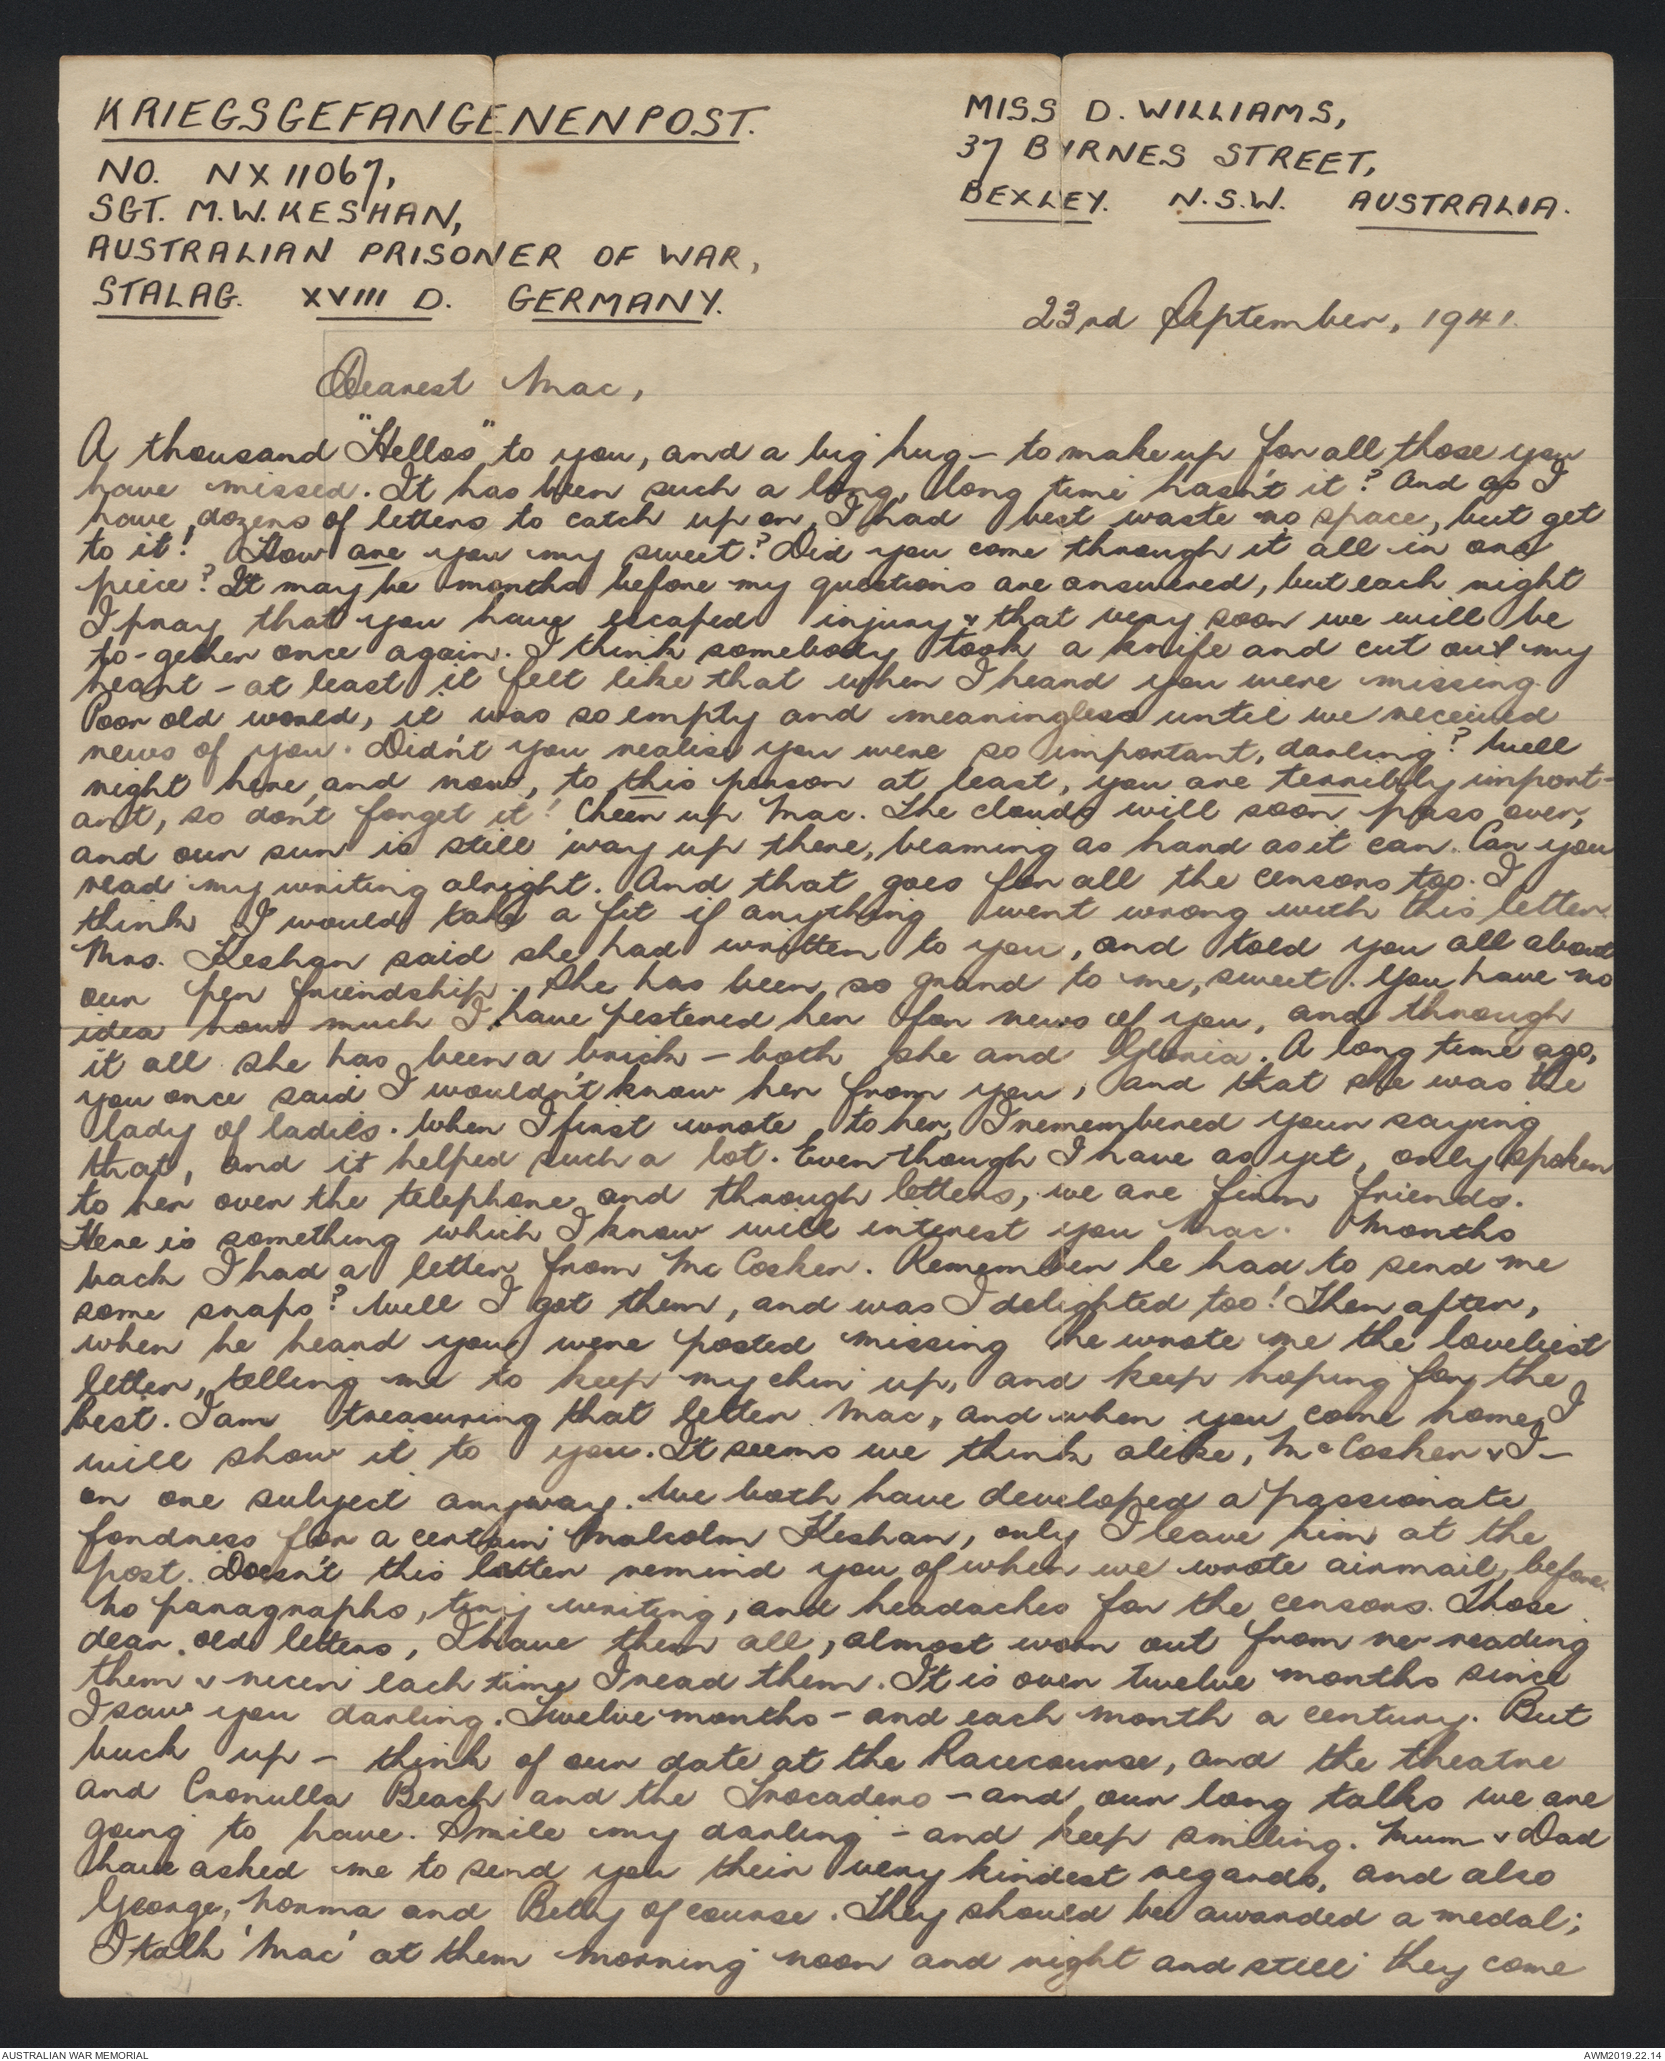 KRIEGSGEFANGENENPOST.
NO. NX 11067,
SGT. M.W. KESHAN,
AUSTRALIAN PRISONER OF WAR,
STALAG. XVIII D. GERMANY.
MISS D. WILLIAMS,
37 BYRNES STREET,
BEXLEY. N.S.W. AUSTRALIA.
23rd September, 1941.
Dearest Mac,
A thousand "Hellos" to you, and a big hug - to make up for all those you
have missed. It has been such a long, long time hasn't it? And as I
have dozens of letters to catch up on, I had best waste no space, but get
to it! How are you my sweet? Did you come through it all in one
piece? It may be months before my questions are answered, but each night
I pray that you have escaped injury & that very soon we will be
to-gether once again. I think somebody took a knife and cut out my
heart - at least it felt like that when I heard you were missing.
Poor old world, it was so empty and meaningless until we received
news of you. Didn't you realise you were so important, darling? Well
right here, and now, to this person at least, you are terribly import-
ant, so don't forget it! Cheer up Mac. The clouds will soon pass over,
and our sun is still way up there, beaming as hard as it can. Can you
read my writing alright. And that goes for all the censors too. I
think I would take a fit if anything went wrong with this letter.
Mrs. Keshan said she had written to you, and told you all about
our pen friendship. She has been so grand to me, sweet. You have no
idea how much I have pestered her for news of you, and through
it all she has been a brick - both she and Gloria. A long time ago,
you once said I wouldn't know her from you, and that she was the
lady of ladies. When I first wrote to her, I remembered your saying
that, and it helped such a lot. Even though I have as yet, only spoken
to her over the telephone and through letters, we are firm friends.
Here is something which I know will interest you Mac. Months
back I had a letter from McCosker. Remember he had to send me
some snaps? Well I got them, and was I delighted too! Then after,
when he heard you were posted missing he wrote me the loveliest
letter, telling me to keep my chin up, and keep hoping for the
best. I am treasuring that letter Mac, and when you come home, I
will show it to you. It seems we think alike, McCosker & I -
on one subject anyway. We both have developed a passionate
fondness for a certain Malcolm Keshan, only I leave him at the
post. Doesn't this letter remind you of when we wrote airmail, before.
No paragraphs, tiny writing, and headaches for the censors. Those
dear old letters, I have them all, almost worn out from re-reading
them & nicer each time I read them. It is over twelve months since
I saw you darling. Twelve months - and each month a century. But
buck up - think of our date at the Racecourse, and the theatre
and Cronulla Beach and the Trocadero - and our long talks we are
going to have. Smile my darling - and keep smiling. Mum & Dad
have asked me to send you their very kindest regards, and also
George, Norma and Betty of course. They should be awarded a medal;
I talk 'Mac' at them morning noon and night and still they come
AUSTRALIAN WAR MEMORIAL
AWM2019.22.14